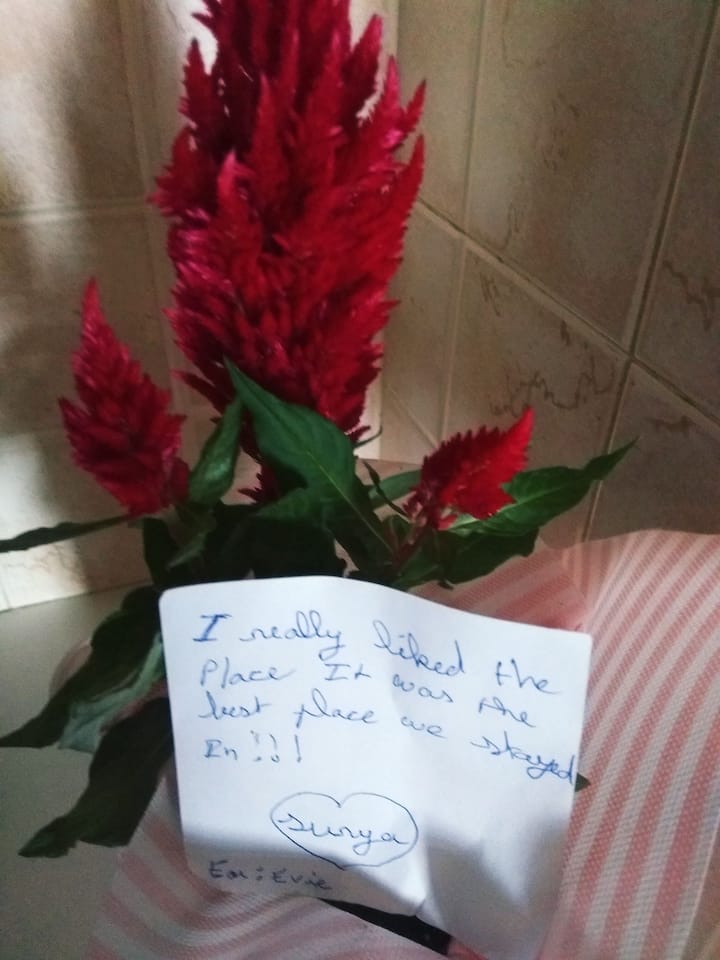 I really liked the
Place It was the
best place we stayed
In!!!
surya
For: Evie